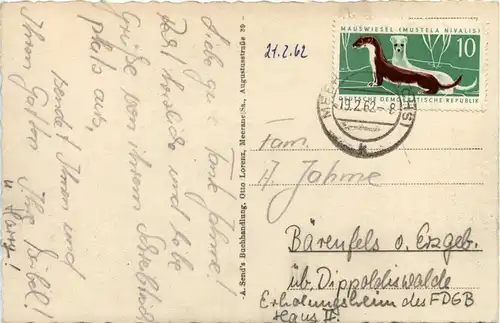 Liebe gute Tante Jahme!
Recht herzliche und liebe
Grüße von ihrem
aus,
sendet Ihnen und
Ihrem Gatten Ihre
u. Hans!
A. Send's Buchhandlung, Otto Lorenz, Meerane/Sa., Augustusstraße 39
21.2.62
MAUSWIESEL (MUSTELA NIVALIS)
10
DEUTSCHE DEMOKRATISCHE REPUBLIK
MEER
CHS
19.2.62
Fam.
A. Jahme
Bärenfels o. Erzgeb.
üb. Dippoldiswalde
Erholungsheim des FDGB
Haus II